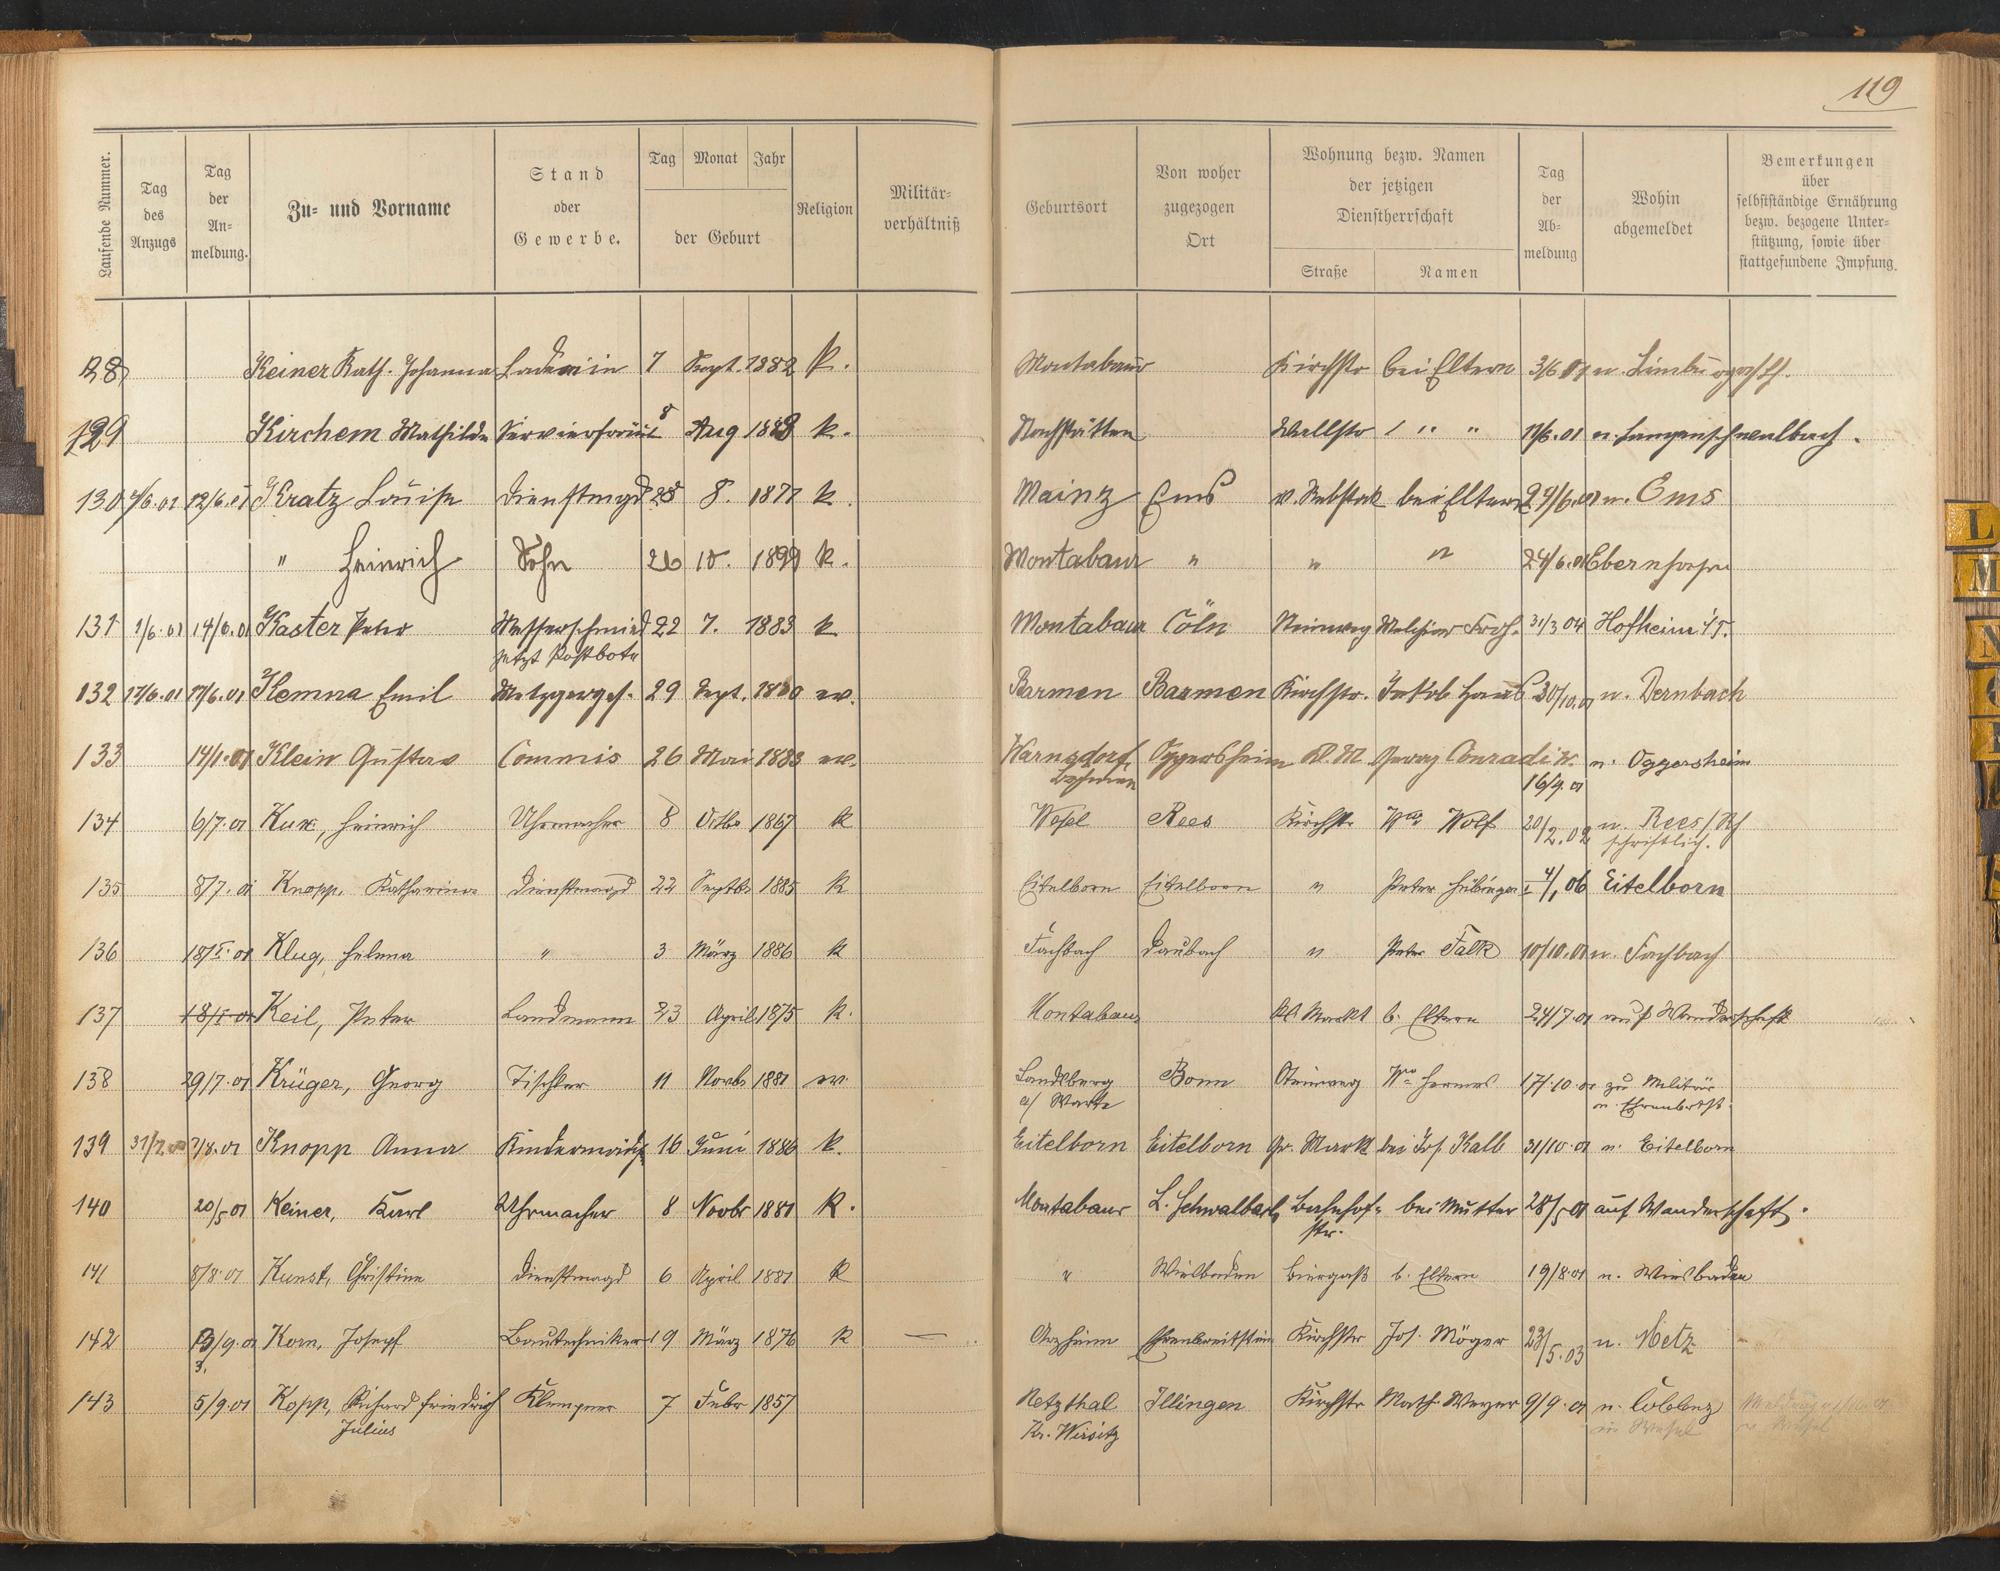 119
Laufende Nummer. Tag des Anzugs Tag der Anmeldung. Zu- und Vorname Stand oder Gewerbe. Tag Monat Jahr der Geburt Religion Militärverhältniß Geburtsort Von woher zugezogen Ort Wohnung bezw. Namen der jetzigen Dienstherrschaft Straße Namen Tag der Abmeldung Wohin abgemeldet Bemerkungen über selbstständige Ernährung bezw. bezogene Unterstützung, sowie über stattgefundene Impfung.
128 Keiner Kath. Johanna Ladnerin 7 Sept. 1882 k. Montabaur Kirchstr bei Eltern 3/6 01 n. Limburg
129 Kirchem Mathilde Servierfräul 8 Aug 1883 k. Nachstätten Wallstr " " 11/6.01 n. Langenschwalbach.
130 4/6.01 12/6.01 Kratz Louise Dienstmgd 28 8. 1877 k. Mainz Ems v. Rebstock bei Eltern 24/6.01 n. Ems
" Heinrich Sohn 26 10. 1899 k. Montabaur " " " 24/6.01 Ebernhahn
131 1/6.01 14/6.01 Kaster Peter Messerschmied 22 7. 1883 k Montabaur Cöln Steinweg Melchior 31/3 04 Hofheim
jetzt Postbote
132 17/6.01 17/6.01 Klemna Emil Metzgerges. 29 Sept. 1880 ev. Barmen Barmen Kirchstr. Jakob 30/10.01 n. Dernbach
133 14/1.01 Klein Gustav Commis 26 Mai 1883 ev. Warnsdorf Oggersheim Kl. M Georg Conradi n. Oggersheim
Böhmen 16/9.01
134 6/7.01 Kux, Heinrich Uhrmacher 8 Octbr 1867 k Wesel Rees Kirchstr Wwe Wolf 20/2.02 n. Rees/Rh
schriftlich.
135 8/7.01 Knopp, Katharina Dienstmagd 22 Septbr 1885 k Eitelborn Eitelborn " Peter Hübinger 4/1 06 Eitelborn
136 18/I.01 Klug, Helena " 3 März 1886 k Fachbach Daubach " Peter Falk 10/10.01 n. Fachbach
137 18/I.01 Keil, Peter Landmann 23 April 1875 k. Montabaur Kl. Markt b. Eltern 24/7.01 auf Wanderschaft
138 29/7.01 Krüger, Georg Tischler 11 Novbr 1881 ev. Landsberg Bonn Steinweg Wwe Hermes 17/10.01 zu Militär
a/ Warte n. Ehrenbrtst.
139 31/7.01 2/8.01 Knopp Anna Kindermädch 16 Juni 1886 k. Eitelborn Eitelborn Gr. Markt bei Jos. Kalb 31/10.01 n. Eitelborn
140 20/5 01 Keiner, Karl Uhrmacher 8 Novbr 1881 k. Montabaur L. Schwalbach Bahnhof- bei Mutter 28/5 01 auf Wanderschaft.
str.
141 8/8.01 Kunst, Christine Dienstmagd 6 April 1881 k " Wiesbaden Burgaß b. Eltern 19/8.01 n. Wiesbaden
142 3/9.01 Korn, Josepf Bautechniker 19 März 1876 k — Arzheim Ehrenbreitstein Kirchstr Jos. Möger 23/5.03 n. Metz
3.
143 5/9.01 Kopp, Richard Friedrich Klempner 7 Febr 1857 Netzthal Illingen Kirchstr Math. Weyer 9/9.01 n. Coblenz
Julius Kr. Wirsitz in Wesel
L
M
N
O